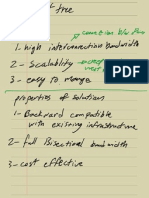 tree
connection b/w
1- high interconnection bandwidth
2- Scalability
3- easy to manage
properties of solutions
1- Backward compatible
with existing infrastructure
2- full Bisectional bandwidth
3- cost effective